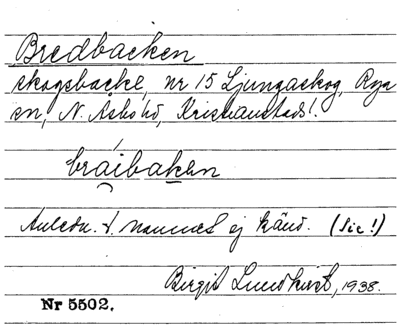 Bredbacken
skogsbacke, nr 15 Ljungaskog, Rya
sn, N. Åsbo hd, Kristianstads l.
braibaken
Anledn. t. namnet ej känd. (Sic!)
Birgit Lundkvist, 1938.
Nr 5502.